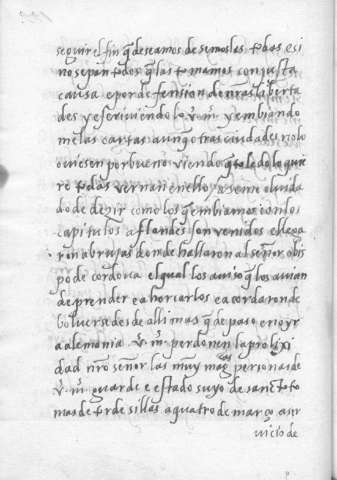 seguir el fin q̃ deseamos de semos las todas e si
no sepan todos q̃ las tomamos con justa
causa e por defension de nr̃as liberta
des y escriviendo lo v. m. y embiando
me las cartas aunq̃ otras ciudades no lo
oviesen por bueno viendo q̃ toledo lo quie
re todas vernan en ello q̃ se me olvida
do de dezir como los q̃ embiamos con los
capitulos a flandes son venidos e llega
ron a brujas donde hallaron al señor obis
po de cordova el qual los aviso q̃ los avian
de prender e ahorcarlos e acordaron de
bolverse desde alli mas q̃ de paso en oyr
a alemonia v. m. perdonen la prolixi
dad nr̃o señor las muy mag. personas de
v. m. guarde e estado suyo de sancto to
mas de tordesillas a quatro de março a sr
vicio de